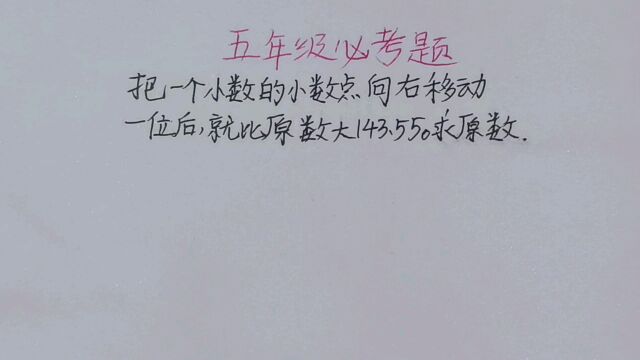 五年级必考题
把一个小数的小数点向右移动
一位后,就比原数大143.55。求原数.